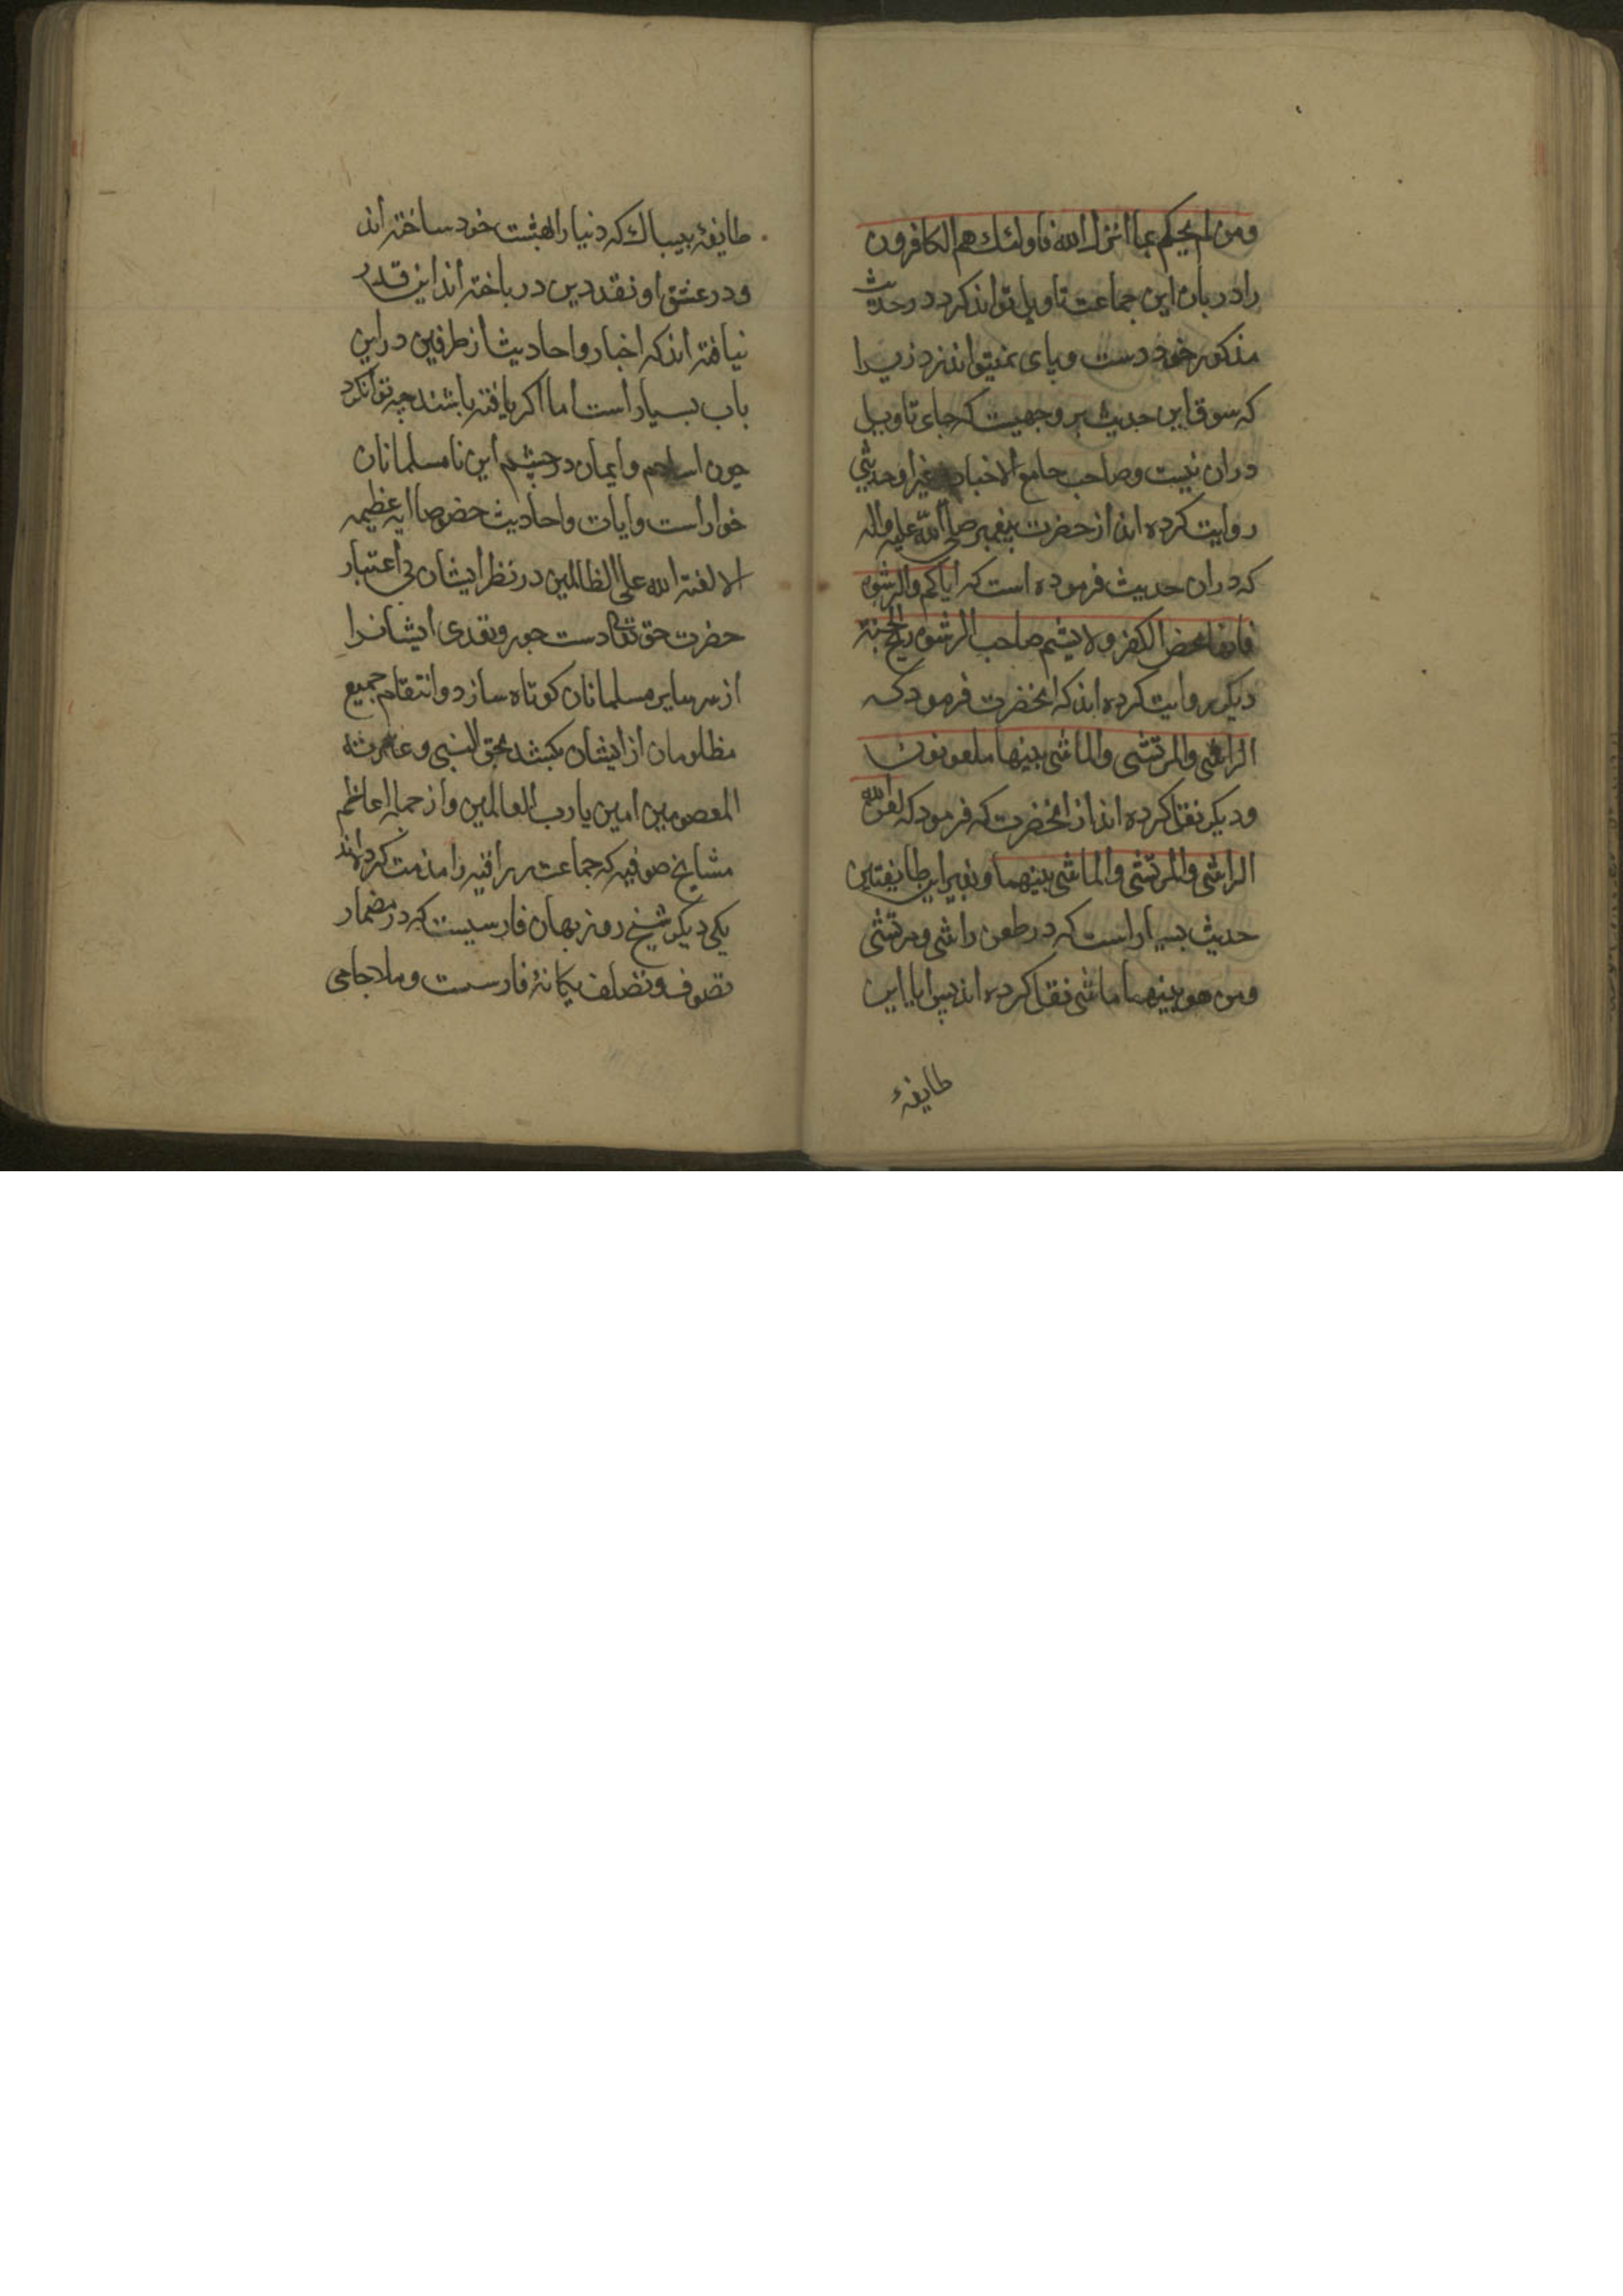 ومن لم یحکم بما انزل الله فاولئك هم الکافرون
را در بارۀ این جماعت تاویل تواند کرد در حدیث
مذکور خود دست و پای نمیتواند زد زیرا
که سوق این حدیث بر وجهیست که جای تاویل
دران نیست و صاحب جامع الاخبار و غیر او حدیثی
روایت کرده اند از حضرت پیغمبر صلی الله علیه واله
که دران حدیث فرموده است که ایاکم والرشوه
فانها محض الکفر ولا یشم صاحب الرشوه ریح الجنة
دیکر روایت کرده اند که انحضرت فرمود که
الراشی والمرتشی والماشی بینهما ملعونون
و دیکر نقل کرده اند از انحضرت که فرمود که لعن الله
الراشی والمرتشی والماشی بینهما و بغیر این طایفتاین
حدیث بسیار است که در طعن راشی و مرتشی
ومن هو بینهما ماشی نقل کرده اند پس ایا این
طایفۀ
طایفۀ بیباك که دنیا را بهشت خود ساخته اند
و در عشق او نقد دین در باخته اند این قدر
نیافته اند که اخبار و احادیث از طرفین در این
باب بسیار است اما اکر یافته باشند چه توانکرد
چون اسلام و ایمان در چشم این نا مسلمانان
خوار است و ایات و احادیث خصوصا ایه عظیمه
الا لعنة الله علی الظالمین در نظر ایشان بی اعتبار
حضرت حق تعالی دست جور و تعدی ایشانرا
از سر سایر مسلمانان کوتاه سازد و انتقام جمیع
مظلومان از ایشان بکشد بحق النبی و عترته
المعصومین امین یا رب العالمین و از جمله اعاظم
مشایخ صوفیه که جماعت زراقیه را مذمت کرده اند
یکی دیکر شیخ روزبهان فارسیست که در مضمار
تصوف و تصلف یکانۀ فارسست و ملا جامی